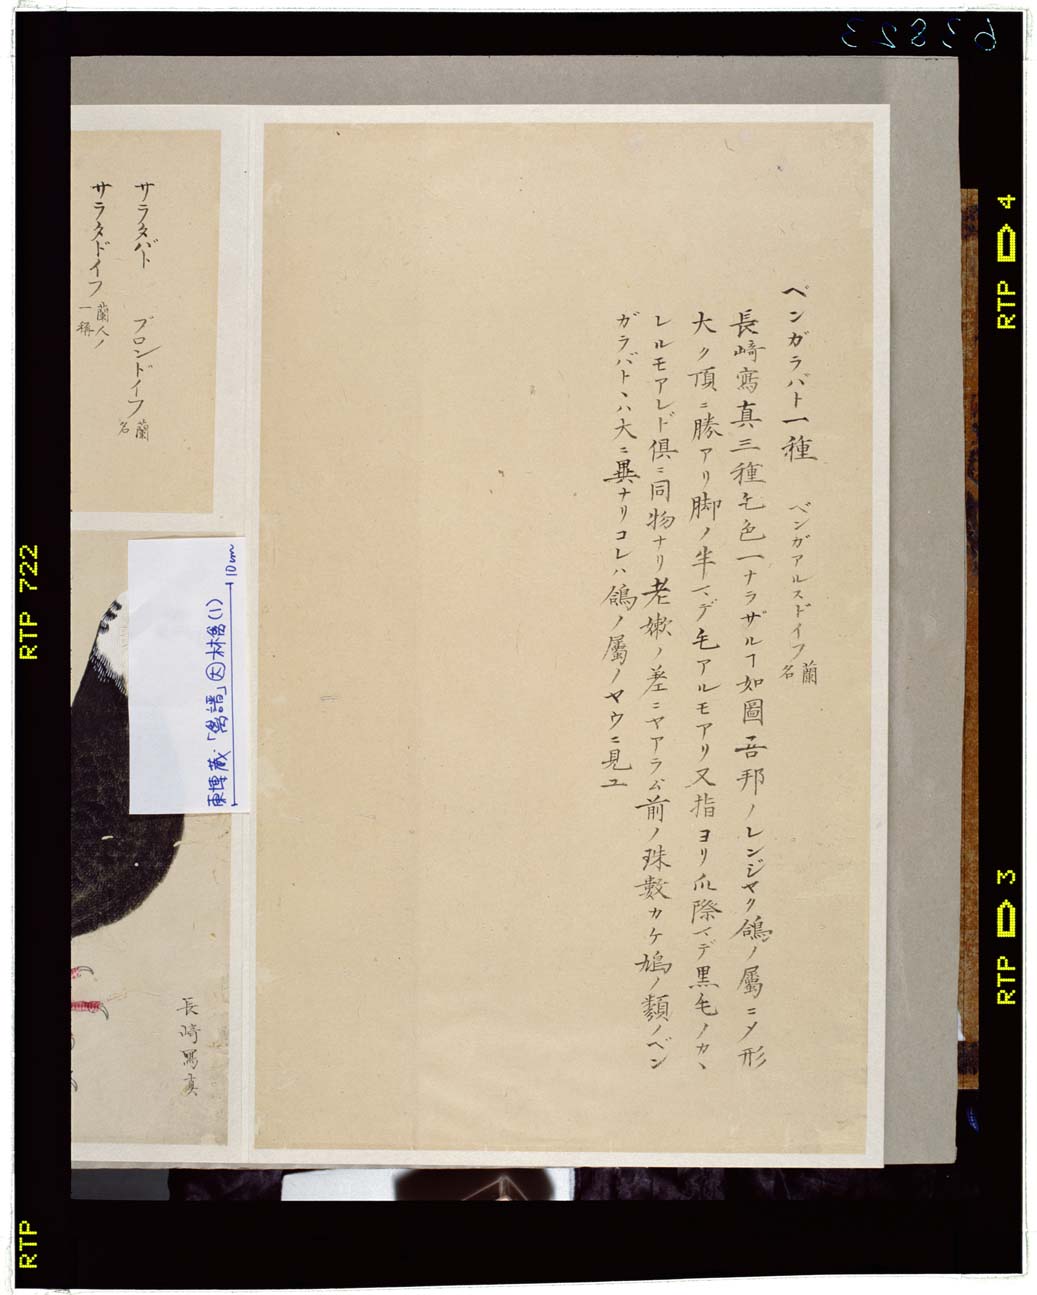 ベンガラバト一種 ベンガアルスドイフ蘭名
長﨑寫真三種毛色一ナラザルヿ如圖吾邦ノレンジヤク鴿ノ屬ニメ形
大ク頂ニ勝アリ脚ノ半マデ毛アルモアリ又指ヨリ爪際マデ黒毛ノカヽ
レルモアレド倶ニ同物ナリ老嫩ノ差ニヤアラム前ノ珠數カケ鳩ノ類ノベン
ガラバトヽハ大ニ異ナリコレハ鴿ノ屬ノヤウニ見ユ
サラタバト ブロンドイフ蘭名
サラタドイフ蘭人ノ一稱
長﨑寫真
東博蔵「禽譜」 林禽(1)
10cm
RTP 4
RTP 3
RTP 722
RTP
63823